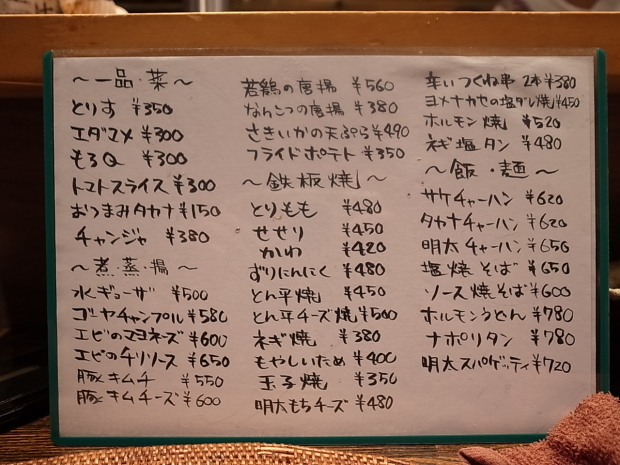 ～一品・菜～
とりす ¥350
エダマメ ¥300
もろQ ¥300
トマトスライス ¥300
おつまみタカナ ¥150
チャンジャ ¥380
～煮・蒸・揚～
水ギョーザ ¥500
ゴーヤチャンプル ¥580
エビのマヨネーズ ¥600
エビのチリソース ¥650
豚キムチ ¥550
豚キムチーズ ¥600
若鶏の唐揚 ¥560
なんこつの唐揚 ¥380
さきいかの天ぷら ¥490
フライドポテト ¥350
～鉄板焼～
とりもも ¥480
せせり ¥450
かわ ¥420
ずりにんにく ¥480
とん平焼 ¥450
とん平チーズ焼 ¥500
ネギ焼 ¥380
もやしいため ¥400
玉子焼 ¥350
明太もちチーズ ¥480
辛いつくね串 2本 ¥380
ヨメナカセの塩ダレ焼 ¥450
ホルモン焼 ¥520
ネギ塩タン ¥480
～飯・麺～
サケチャーハン ¥620
タカナチャーハン ¥620
明太チャーハン ¥650
塩焼そば ¥650
ソース焼そば ¥600
ホルモンうどん ¥780
ナポリタン ¥780
明太スパゲッティ ¥720